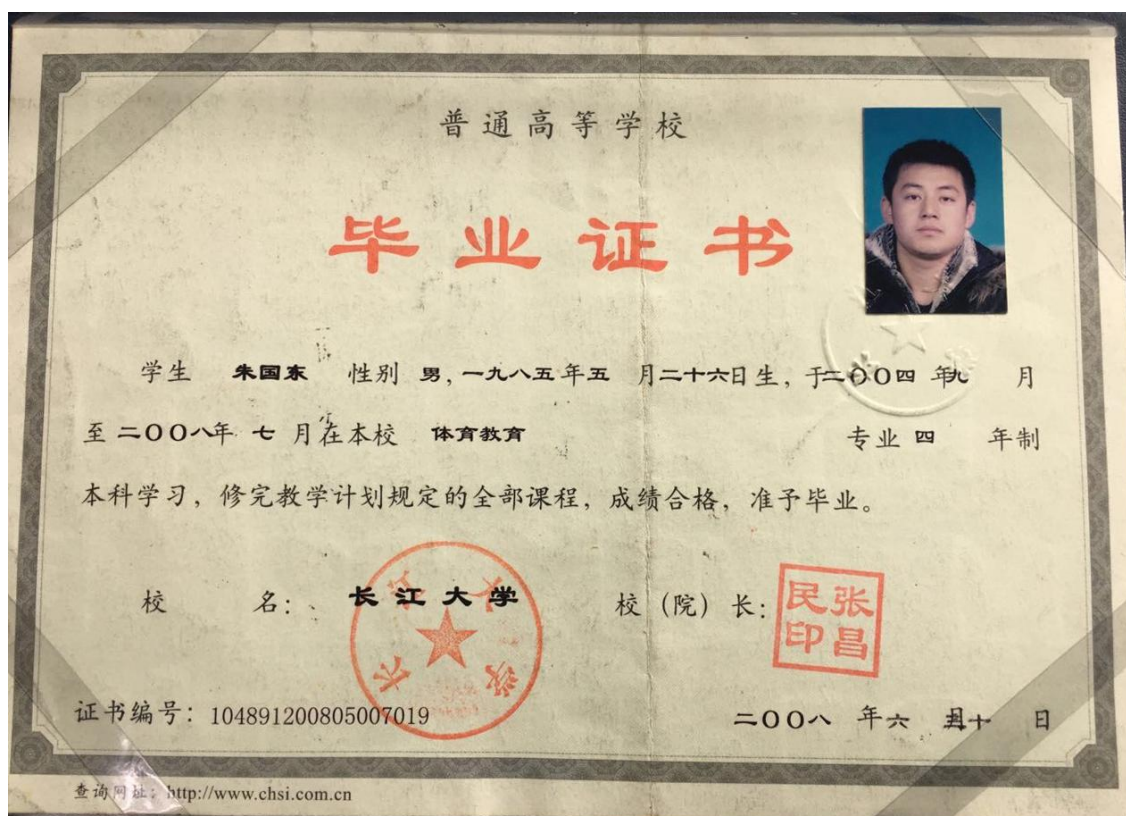 普通高等学校
毕业证书
学生 朱国东 性别 男，一九八五年五 月二十六日生，于二〇〇四 年九 月
至 二〇〇八年 七 月在本校 体育教育 专业 四 年制
本科学习，修完教学计划规定的全部课程，成绩合格，准予毕业。
校 名： 长江大学 校（院）长： 张昌民印
证书编号：104891200805007019 二〇〇八 年六 月 十 日
查询网址：http://www.chsi.com.cn